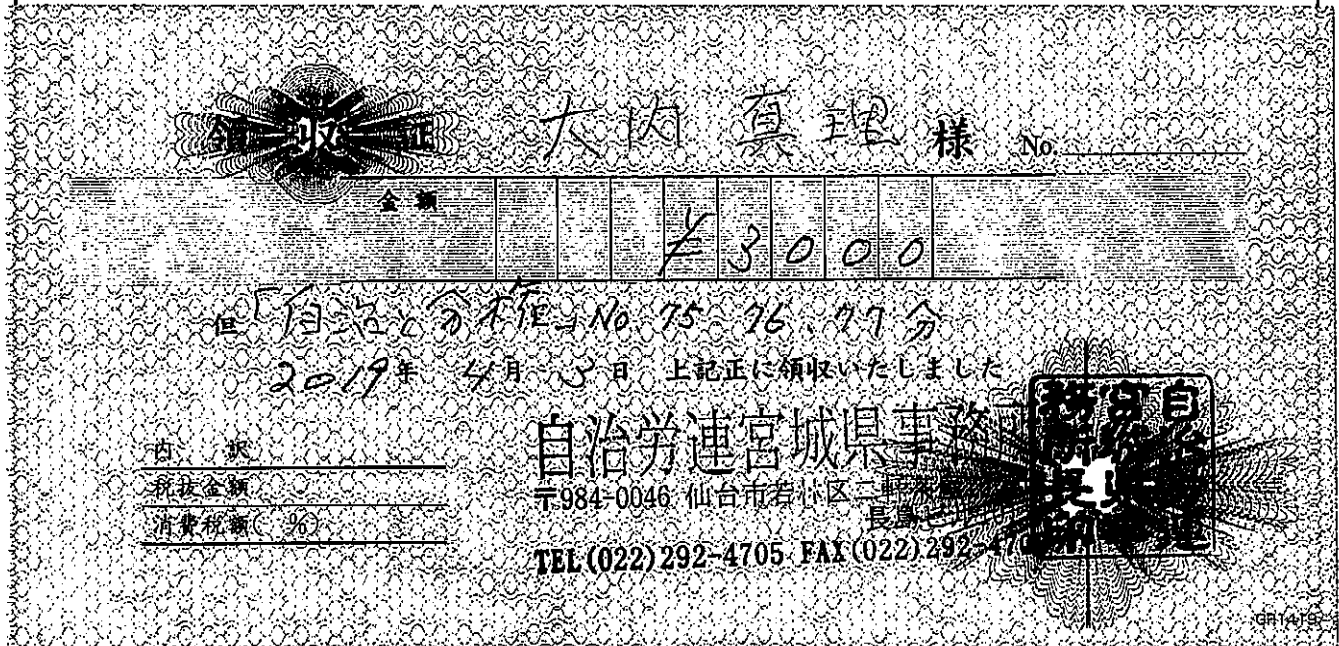 領収証
大内 真理 様 No.
金額
¥3000
但「自治と分権」No.75.76.77分
2019年 4月 3日 上記正に領収いたしました
自治労連宮城県事務
〒984-0046 仙台市若林区二軒茶屋
長島ビ
TEL(022)292-4705 FAX(022)292-47
内 訳
税抜金額
消費税額( %)